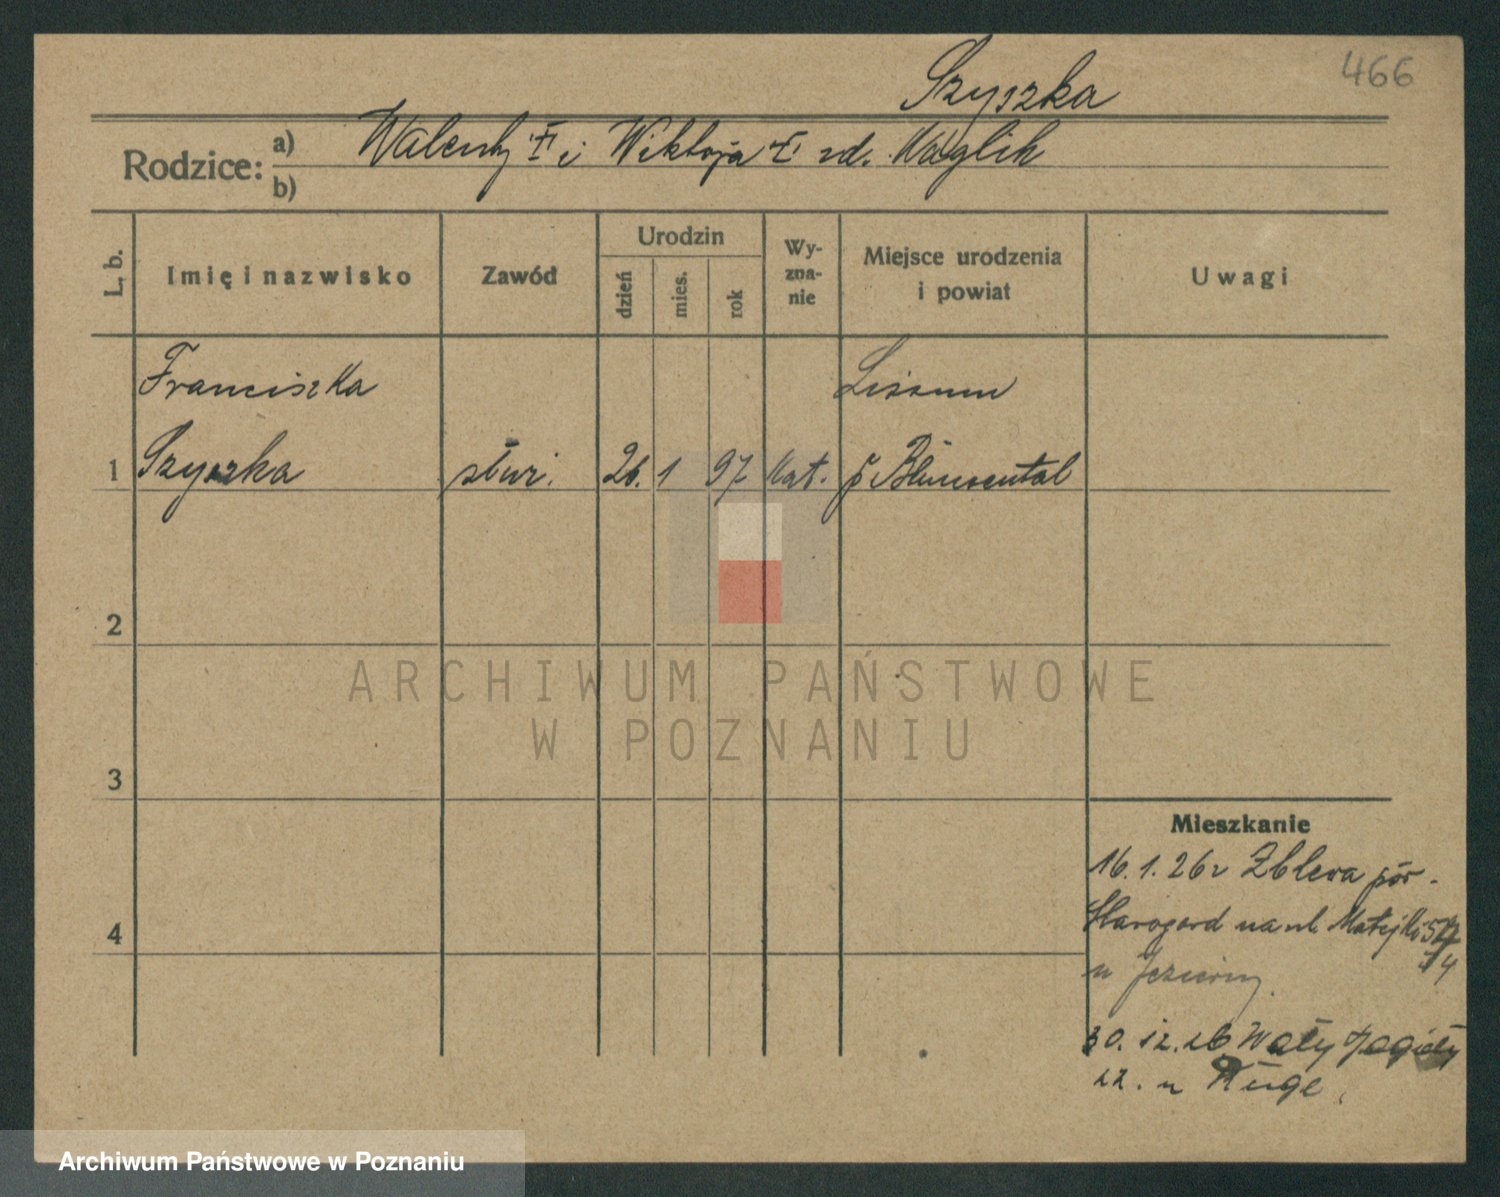 466
Szyszka
Rodzice: a) Walenty i Wiktorja zd. Waglik
b)
L. b. Imię i nazwisko Zawód Urodzin dzień mies. rok Wy-zna-nie Miejsce urodzenia i powiat Uwagi
Franciszka Lissum
1 Szyszka służ. 26. 1 97 Kat. p. Blumental
2
ARCHIWUM PAŃSTWOWE
W POZNANIU
3
Mieszkanie
16.1.26r Zblewa pow.
4 Starogard na ul. Matejki
u Jeziorny.
30.12.26 Wały Jagiełły
22. u Kluge.
Archiwum Państwowe w Poznaniu